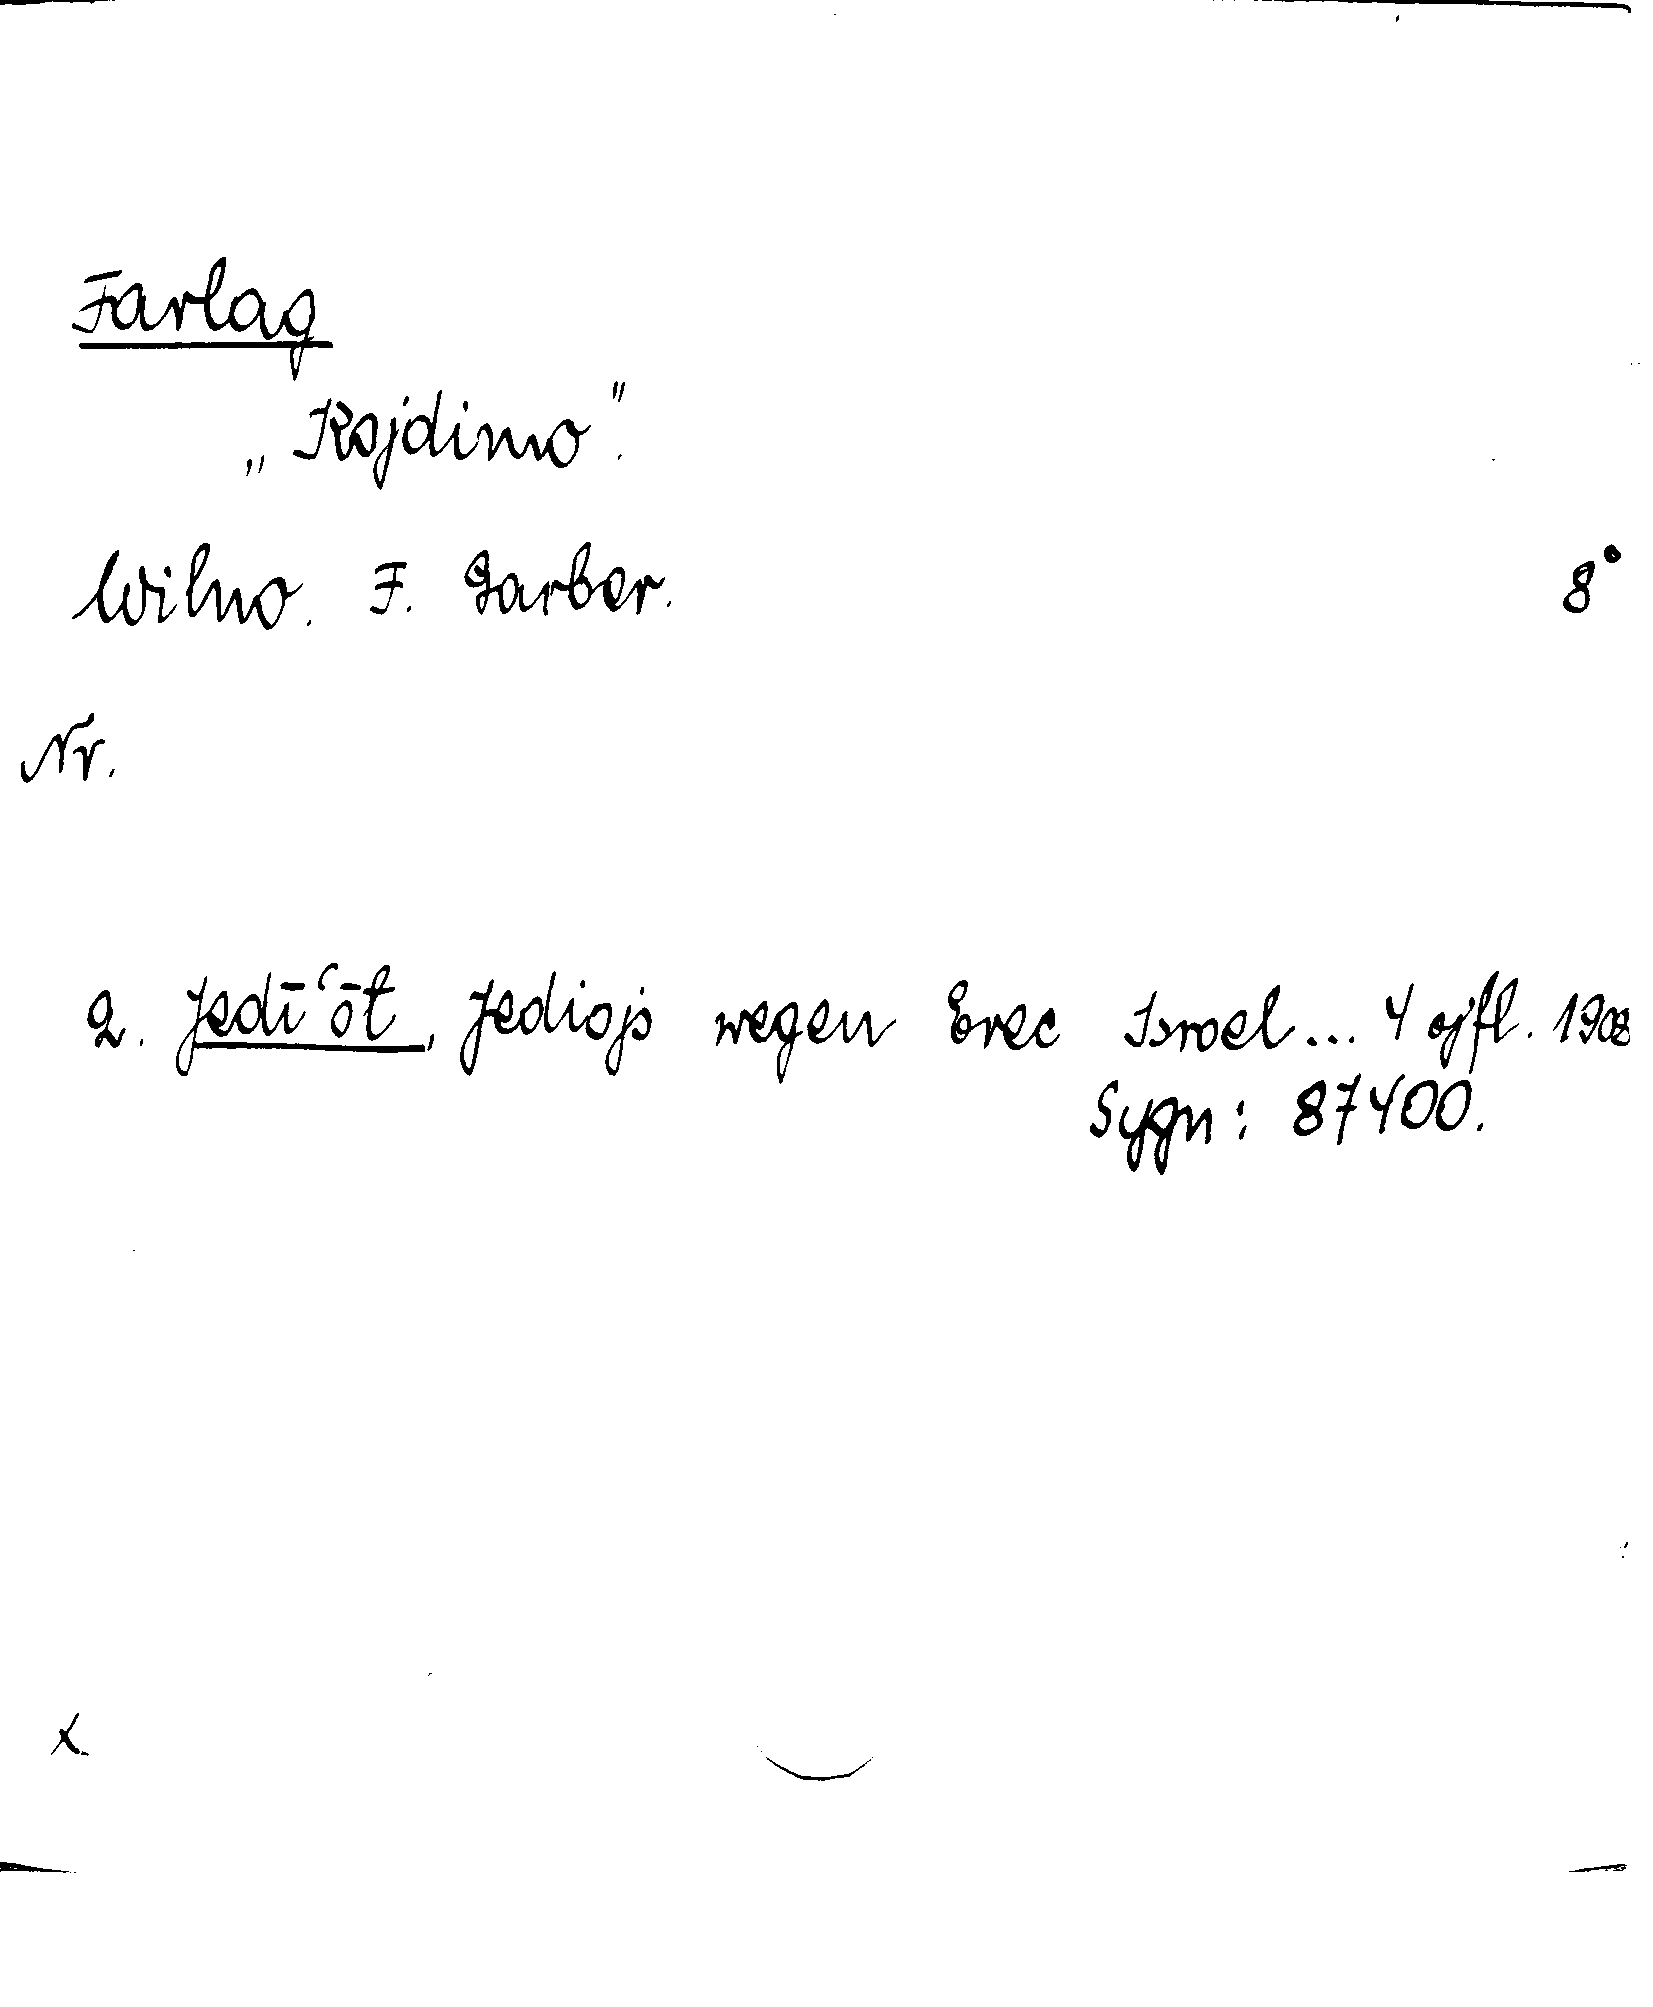 Farlag
„Kojdimo".
Wilno. F. Garber. 8°
Nr.
2. Jedī‘ōt, Jediojs wegen Erec Isroel... 4 ojfl. 1908
Sygn: 87400.
X